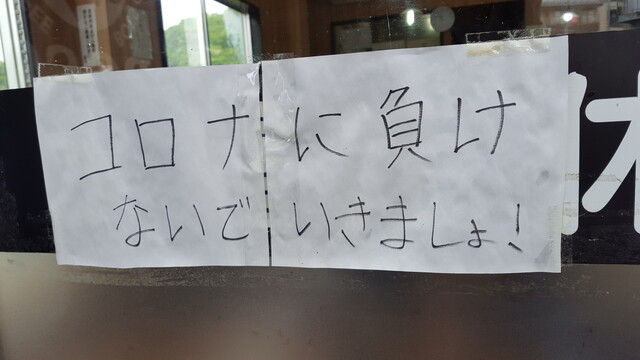 コロナに負け
ないでいきましょ!